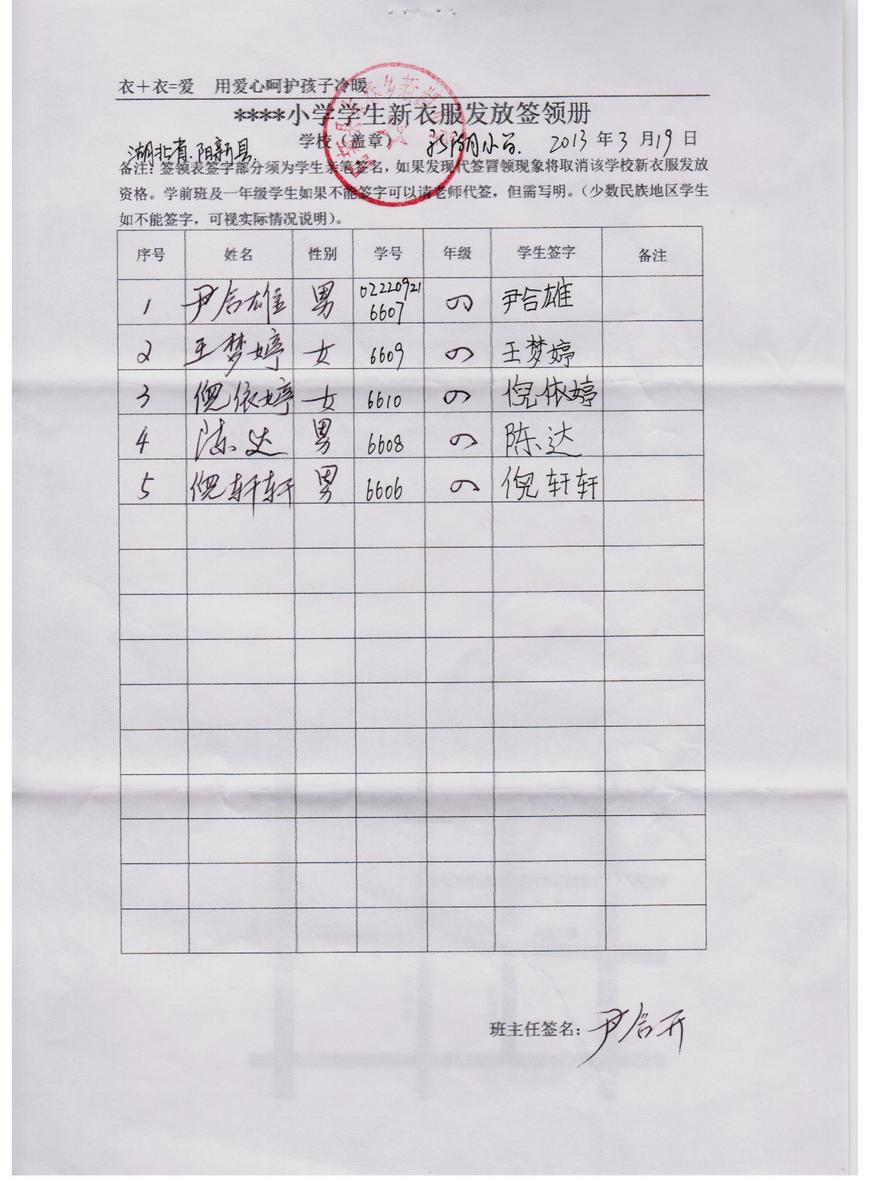 衣+衣=爱 用爱心呵护孩子冷暖
****小学学生新衣服发放签领册
湖北省.阳新县 学校（盖章） 小学. 2013 年 3 月 19 日
备注：签领表签字部分须为学生亲笔签名，如果发现代签冒领现象将取消该学校新衣服发放
资格。学前班及一年级学生如果不能签字可以请老师代签，但需写明。（少数民族地区学生
如不能签字，可视实际情况说明）。
序号 姓名 性别 学号 年级 学生签字 备注
1 尹合雄 男 02220921 6607 尹合雄
2 王梦婷 女 6609 王梦婷
3 倪依婷 女 6610 倪依婷
4 陈达 男 6608 陈达
5 倪轩轩 男 6606 倪轩轩
班主任签名：尹合开